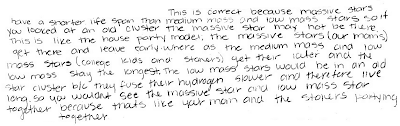 This is correct because massive stars
have a shorter life span than medium mass and low mass stars so if
you looked at an old cluster the massive star may not be there.
This is like the house party model, the massive stars (our moms)
get there and leave early where as the medium mass and low
mass stars (college kids and stoners) get their later and the
low mass stay the longest. The low mass stars would be in an old
star cluster b/c they fuse their hydrogen slower and therefore live
long, so you wouldnt see the massive star and low mass star
together because thats like your mom and the stoners partying
together